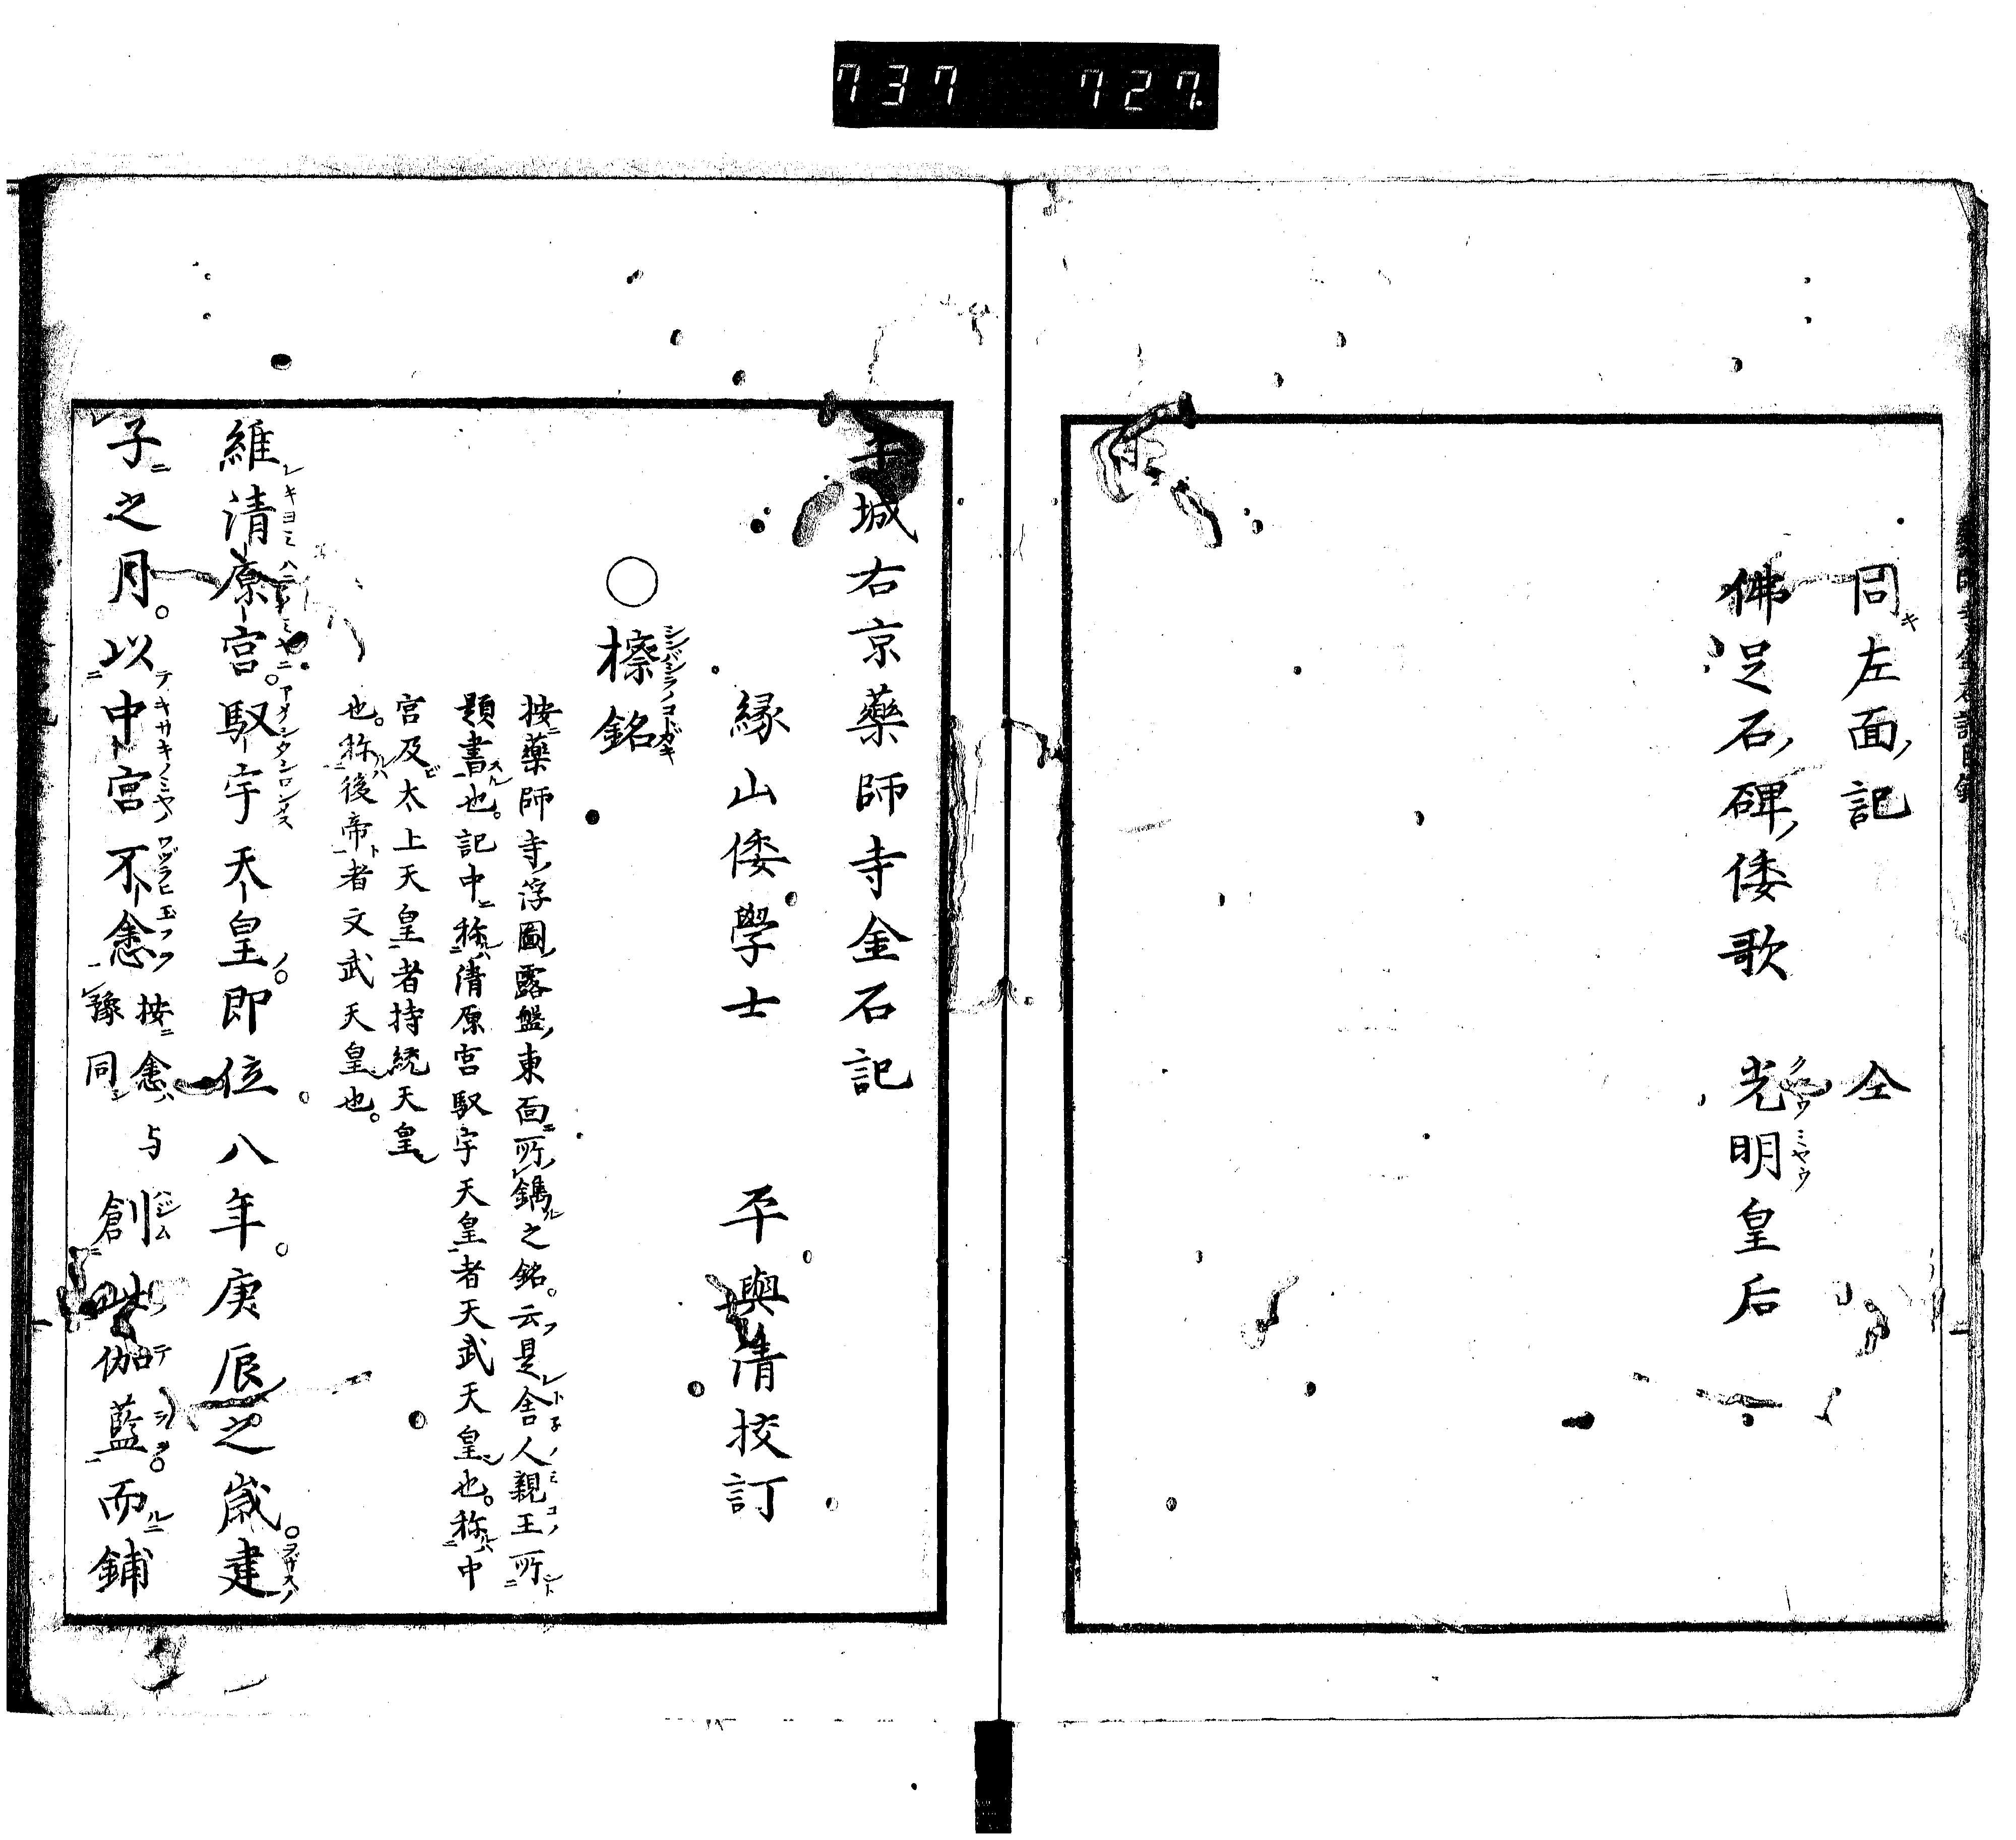 737 727
同左面記 仝
佛足石碑倭歌 光明皇后
平城右京藥師寺金石記
縁山倭學士 平與清校訂
○檫銘
按藥師寺浮圖露盤東面所鐫之銘。云是舍人親王所
題書也。記中称清原宮馭宇天皇者天武天皇也。称中
宮及太上天皇者持統天皇
也。称後帝者文武天皇也。
維清原宮。馭宇天皇。即位八年。庚辰之歳。建
子之月。以中宮不悆按悆与豫同創此伽藍。而鋪